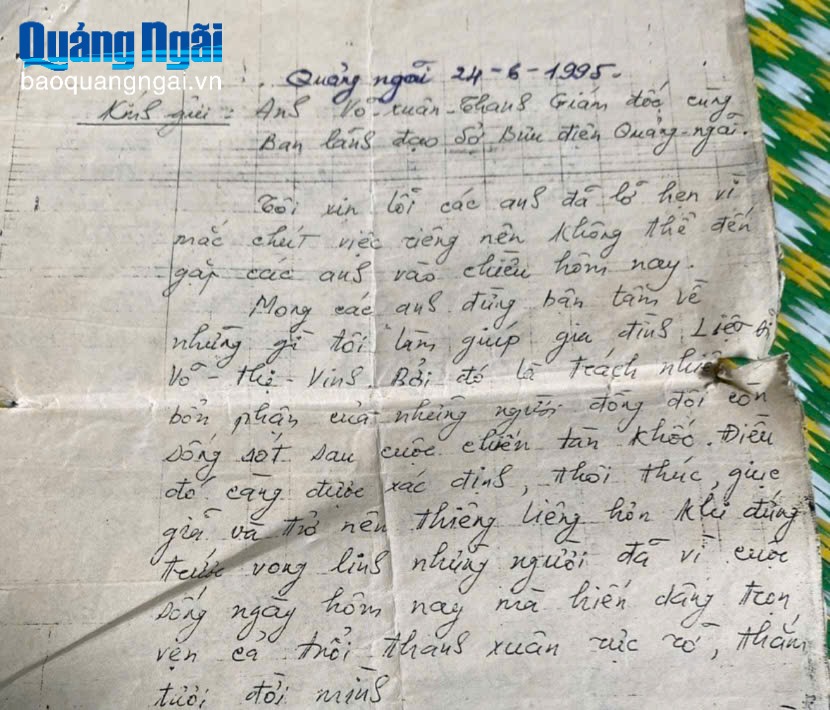 Quảng Ngãi
baoquangngai.vn
Quảng ngãi 24-6-1995.
Kính gửi: Anh Võ-xuân-Thanh Giám đốc cùng
Ban lãnh đạo Sở Bưu điện Quảng-ngãi.
Tôi xin lỗi các anh đã lỡ hẹn vì
mắc chút việc riêng nên không thể đến
gặp các anh vào chiều hôm nay.
Mong các anh đừng bận tâm về
những gì tôi làm giúp gia đình Liệt sĩ
Võ-thị-Vinh. Bởi đó là trách nhiệm
bổn phận của những người đồng đội còn
sống sót sau cuộc chiến tàn khốc. Điều
đó càng được xác định, thôi thúc, giục
giã và trở nên thiêng liêng hơn khi đứng
trước vong linh những người đã vì cuộc
sống ngày hôm nay mà hiến dâng trọn
vẹn cả tuổi thanh xuân rực rỡ, thắm
tươi đời mình